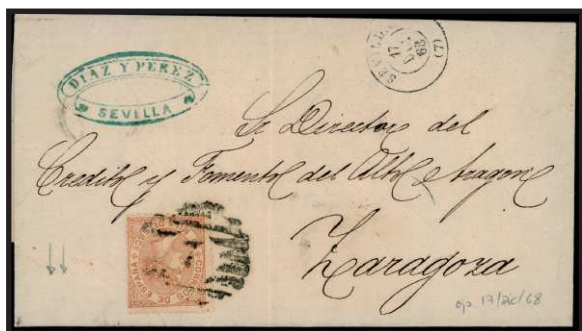 DIAZ Y PEREZ
SEVILLA
SEVILLA
17
DIC
68
(7)
Sr Director del
Credito y Fomento del Alto Aragon
Zaragoza
CORREOS DE ESPAÑA
17/dic/68